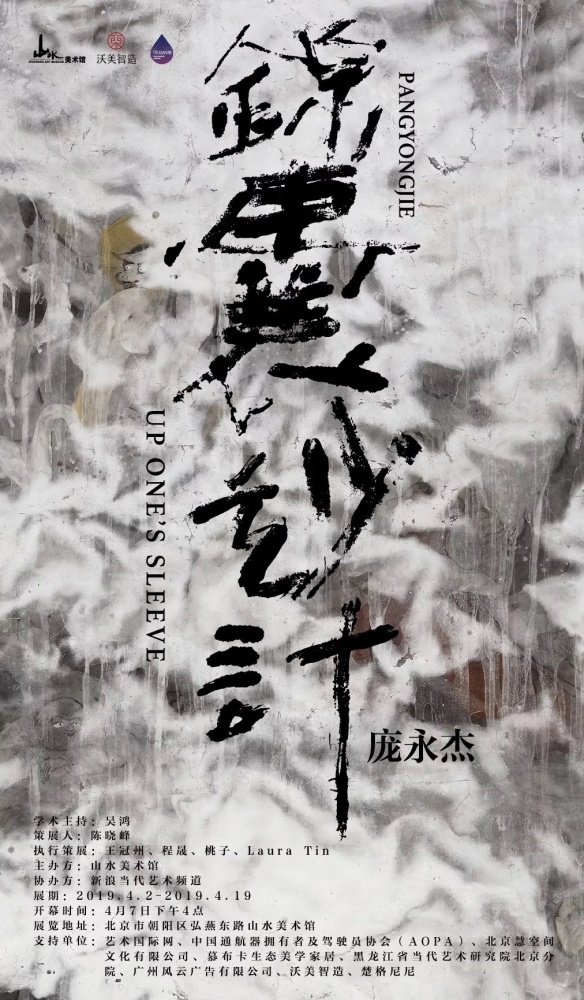 山水美术馆
沃美智造
錦囊玅計
PANGYONGJIE
UP ONE'S SLEEVE
庞永杰
学术主持：吴鸿
策展人：陈晓峰
执行策展：王冠州、程晟、桃子、Laura Tin
主办方：山水美术馆
协办方：新浪当代艺术频道
展期：2019.4.2-2019.4.19
开幕时间：4月7日下午4点
展览地址：北京市朝阳区弘燕东路山水美术馆
支持单位：艺术国际网、中国通航器拥有者及驾驶员协会（AOPA）、北京慧空间
文化有限公司、慕布卡生态美学家居、黑龙江省当代艺术研究院北京分
院、广州风云广告有限公司、沃美智造、楚格尼尼